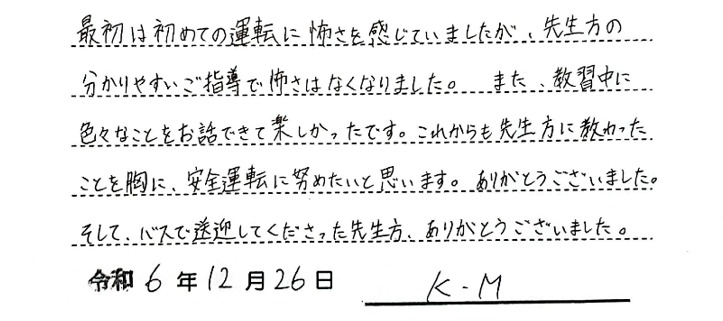 最初は初めての運転に怖さを感じていましたが、先生方の
分かりやすいご指導で怖さはなくなりました。 また、教習中に
色々なことをお話できて楽しかったです。これからも先生方に教わった
ことを胸に、安全運転に努めたいと思います。ありがとうございました。
そして、バスで送迎してくださった先生方、ありがとうございました。
令和6年12月26日 K.M